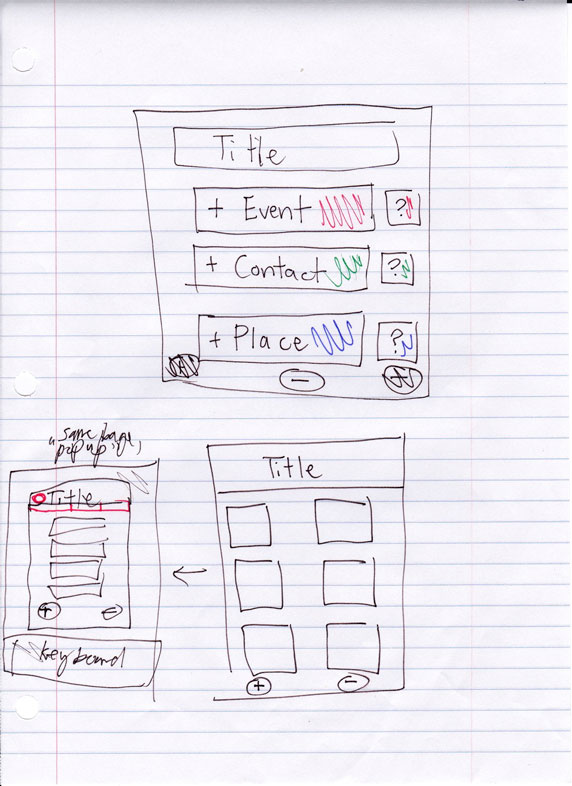 Title
+ Event ?
+ Contact ?
+ Place ?
−
"same page,
pop up"
Title
Title
+ −
Keyboard
+ −